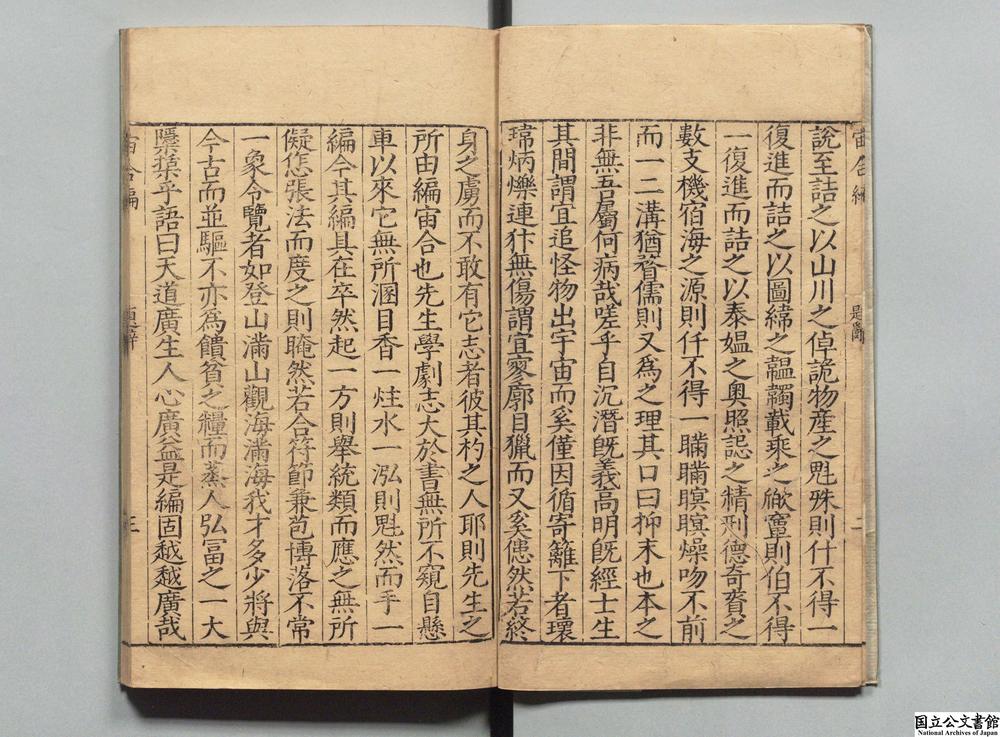 宙合編
題辭
二
說至詰之以山川之倬詭物產之魁殊則什不得一
復進而詰之以圖緯之韞韣載乘之厥竄則伯不得
一復進而詰之以泰媼之奧照誋之精刑德奇賌之
數支機宿海之源則仟不得一瞞瞞瞑瞑燥吻不前
而一二溝猶瞀儒則又爲之理其口曰抑末也本之
非無吾屬何病哉嗟乎自沉潛旣義高明旣經士生
其間謂宜追怪物出宇宙而奚僅因循寄籬下者環
琦炳爍連犿無傷謂宜寥廓目獵而又奚僡然若終
身之虜而不敢有它志者彼其杓之人耶則先生之
所由編宙合也先生學劇志大於書無所不窺自懸
車以來它無所溷目香一炷水一泓則魁然而手一
編今其編具在卒然起一方則舉統類而應之無所
儗㤰張法而度之則晻然若合符節兼苞博落不常
一象令覽者如登山滿山觀海滿海我才多少將與
今古而並驅不亦爲饋貧之糧而蒸人弘富之一大
隱栝乎語曰天道廣生人心廣益是編固越越廣哉
宙合編
題辭
三
国立公文書館
National Archives of Japan